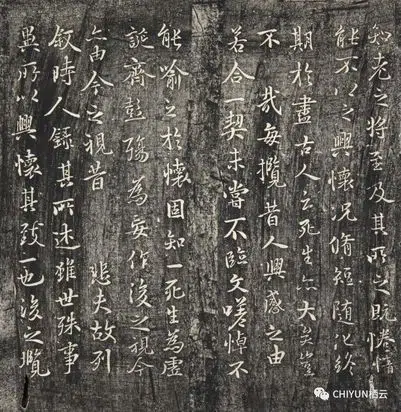 知老之将至及其所之既惓情
能不以之興懷况脩短随化終
期於盡古人云死生亦大矣豈
不 哉每攬昔人興感之由
若合一契未嘗不臨文嗟悼不
能喻之於懷固知一死生為虚
誕齊彭殤為妄作後之視今
亦由今之視昔 悲夫故列
叙時人録其所述雖世殊事
異所以興懷其致一也後之攬
CHIYUN栖云